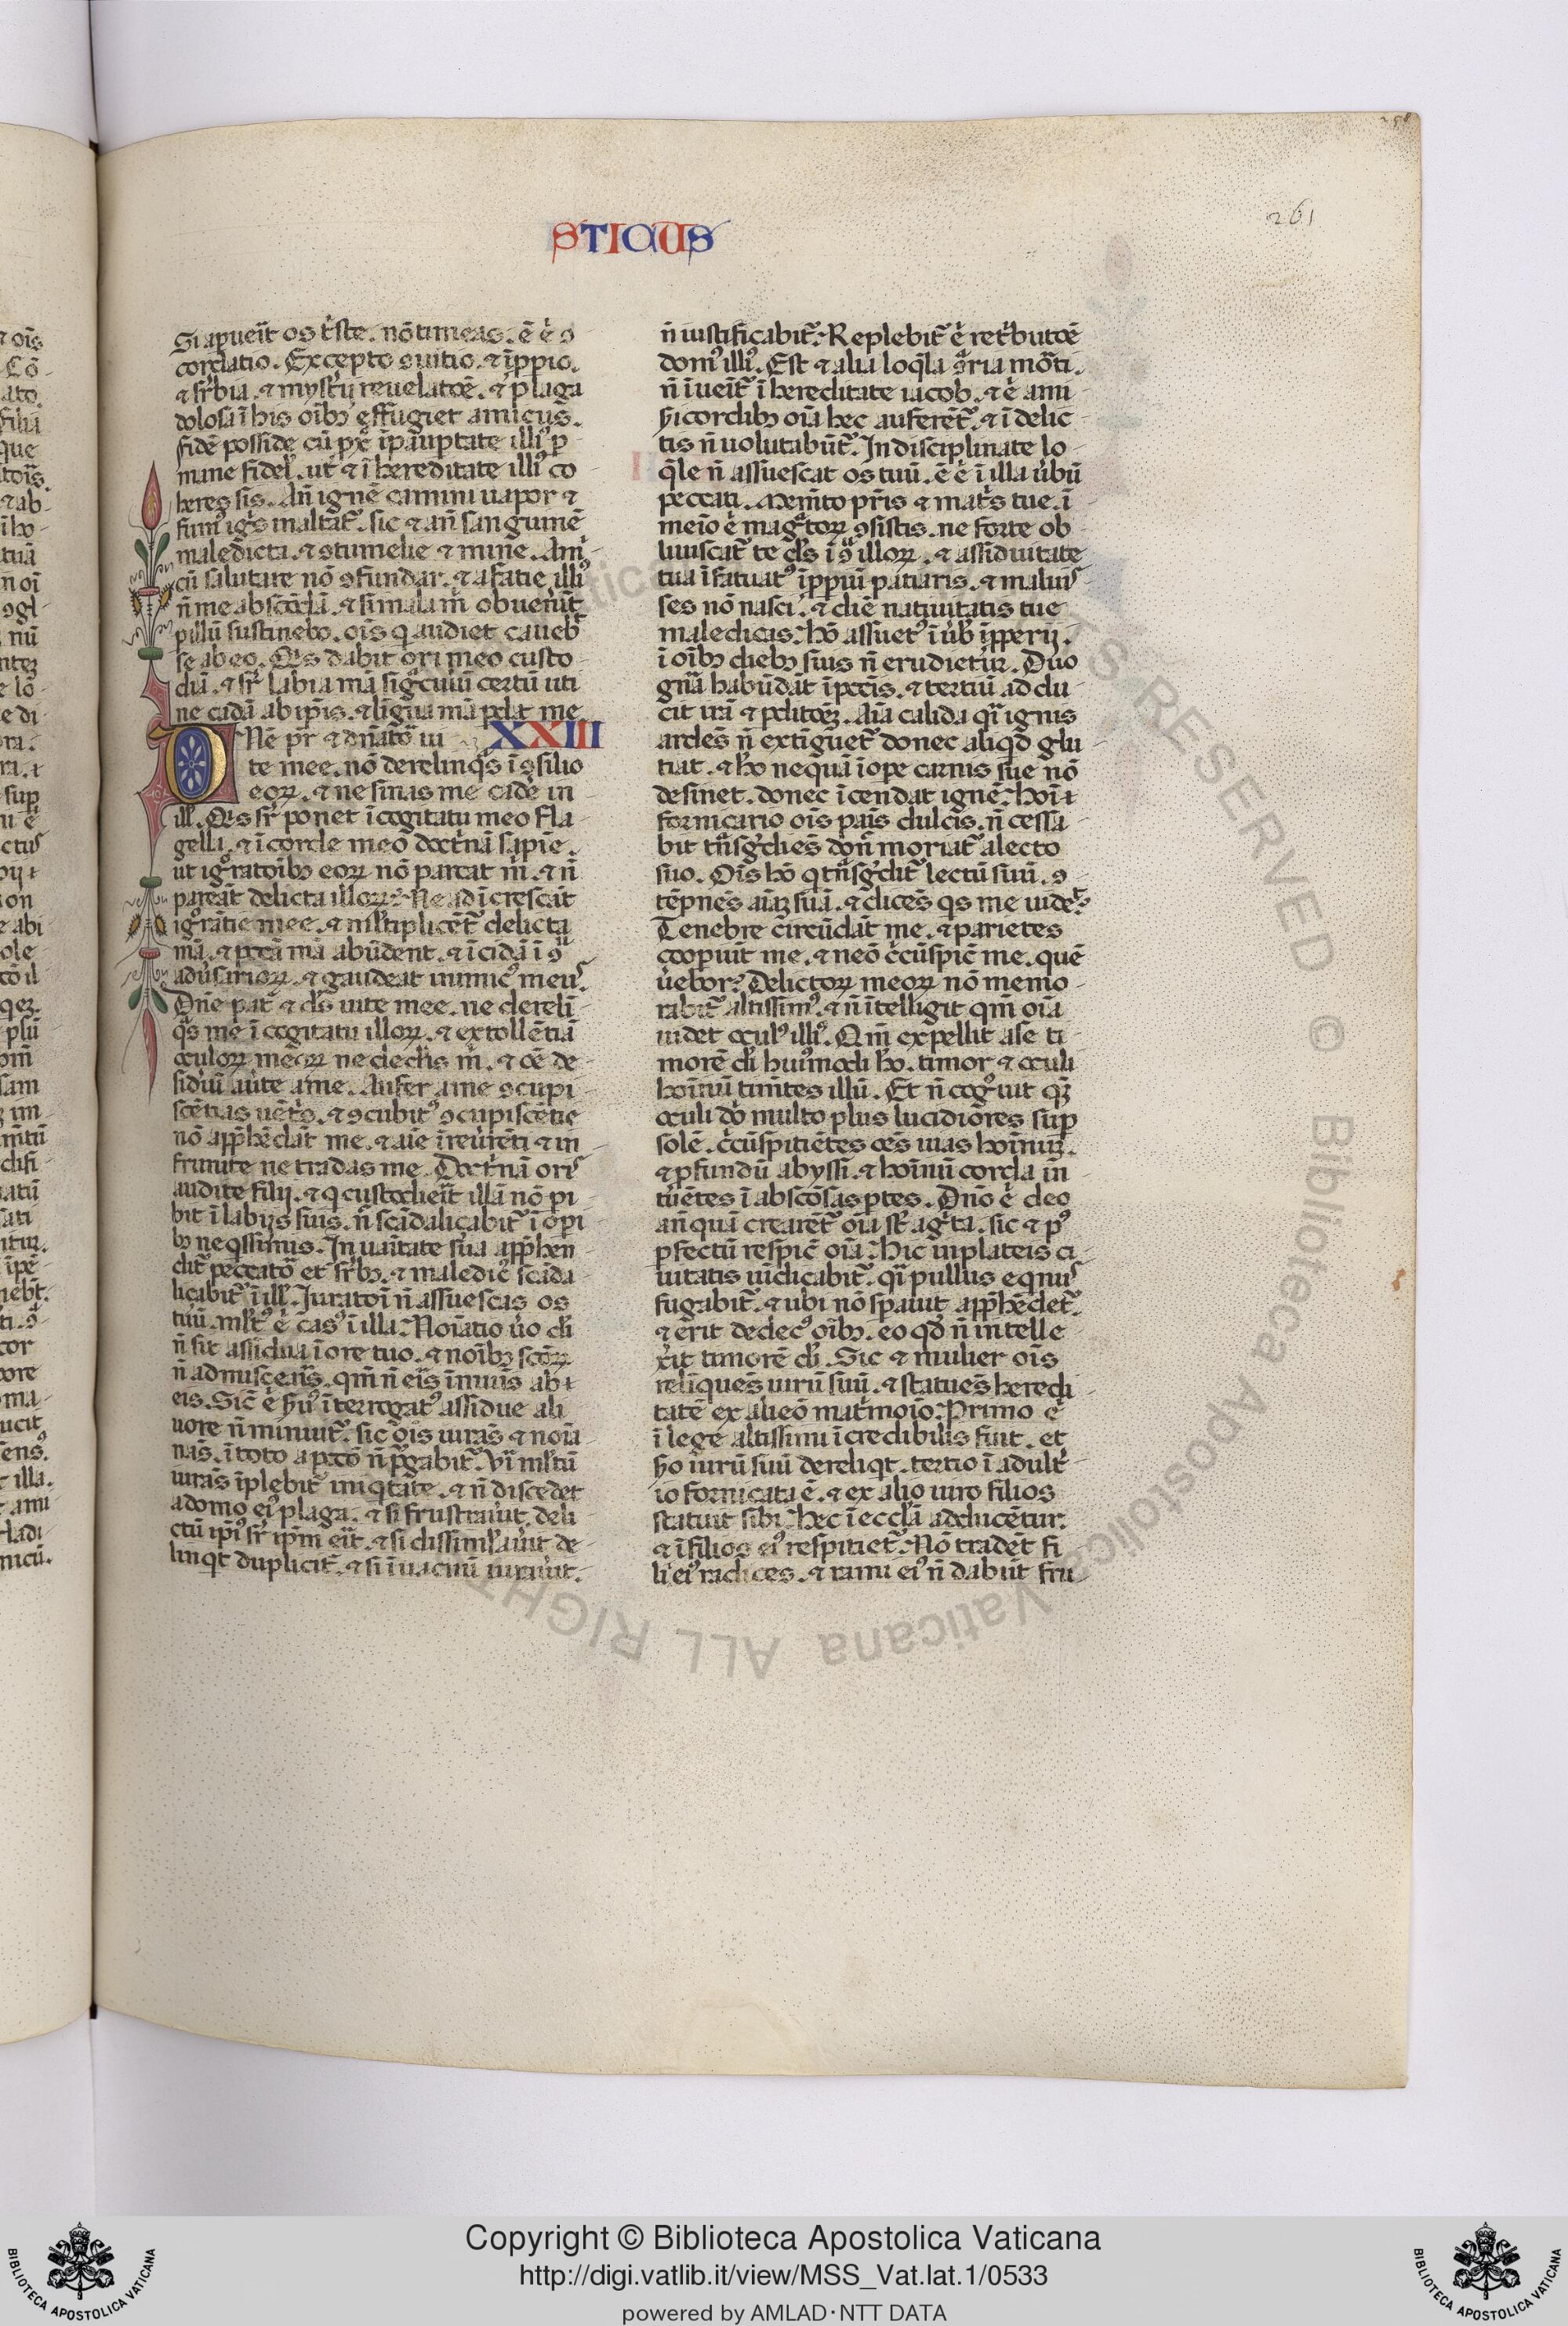 261
STICUS
Si apueit̃ os t̾ste. nõ timeas. ẽ e̾ ꝯ
cordatio. Excepto ꝯuitio. ⁊ ip̃pio.
⁊ sr̃bia. ⁊ myst̾ij reuelatõe. ⁊ plaga
dolosa ĩ his oĩbꝫ effugiet amicus.
fidẽ posside cũ pẋ ĩ paup̱tate illiꝰ p̱
mane fidel̾. ut̃ ⁊ ĩ hereditate illiꝰ co
heres sis. Añ ignẽ camini uapor ⁊
fumꝰ ig̾s ĩaltat̃. sic ⁊ añ sanguinẽ
maledicta. ⁊ ꝯtumelie ⁊ mine. Ami
cũ salutare nõ ꝯfundar. ⁊ a fatie illiꝰ
ñ me abscõdã. ⁊ si mala m̃ obuenũt̃
p illũ sustinebo. oĩs q audiet caueb̾
se ab eo. Q̾s dabit ori meo custo
diã. ⁊ sr̃ labia mã sig̾culũ certũ uti
ne cadã ab ip̃is. ⁊ lĩgua mã p̱dat me.
XXIII
DNẽ pr̃ ⁊ dñatõ ui
te mee. nõ derelinq̾s ĩ ꝯsilio
eoꝝ. ⁊ ne sinas me cade̾ in
ill̾. Q̾s sr̃ ponet ĩ cogitatu meo fla
gella. ⁊ ĩ corde meo doct̾nã sapiẽ.
ut ig̾ratõibꝫ eoꝝ nõ parcat m̃. ⁊ ñ
pareãt delicta illoꝝ. Ne adĩcrescãt
ig̾rãtie mee. ⁊ mĺtiplicẽt̃ delicta
mã. ⁊ pctã mã abũdent. ⁊ ĩcidã ĩ ꝯ̾
adũsarioꝝ. ⁊ gaudeat inimicꝰ meus.
Dñe pat̃ ⁊ ds̃ uite mee. ne derelĩ
q̾s me ĩ cogitatu illoꝝ. ⁊ extollẽtiã
oculoꝝ meoꝝ ne dedis̾ m̃. ⁊ oẽ de
sidiũ aũte a me. Aufer a me ꝯcupi
scẽtias uẽt̾s. ⁊ ꝯcubitꝰ ꝯcupiscẽtie
nõ app̃hẽdãt me. ⁊ aĩe ĩreũẽti ⁊ in
frunite ne tradas me. Doct̾nã oris
audite filij. ⁊ q custodieit̃ illã nõ pi
bit ĩ labijs suis. ñ scãdalicabit̃ ĩ opi
bꝫ neqssimis. In uaĩtate sua app̃hen
dit̃ peccatõ et sr̃bꝫ. ⁊ maledic̾ scãda
licabit̃ ĩ ill̾. Iuratoĩ ñ assuescas os
tuũ. mĺt̃ e̾ casꝰ ĩ illa. Noĩatio ũo di
ñ sit assidua ĩ ore tuo. ⁊ noĩbꝫ scõꝝ
ñ admisceas̃. qm̃ ñ eis̃ ĩmuis̃ ab ⁊
eis. Sic̃ e̾ ẖuꝰ ĩterrogatꝰ assidue ali
uore ñ minuit̃. sic̃ oĩs iuras̃ ⁊ noĩa
nas̃. ĩ toto a pctõ ñ p̃gabit̃. Vĩ mĺtũ
iuras ĩplebit̃ iniqtate. ⁊ ñ discedet
a domo eiꝰ plaga. ⁊ si frustrauit̃. deli
ctũ ip̃iꝰ sr̃ ip̃m eit̃. ⁊ si dissimĺauit̃ de
linqt duplicit̃. ⁊ si ĩ uacuũ iurauit̃.
ñ iustificabit̃. Replebit̃ e̾ ret̾butõe
domꝰ illiꝰ. Est ⁊ alia loq̃la ꝯ̾ria mõti.
ñ ĩueit̃ ĩ hereditate iacob. ⁊ e̾ ami
ẖicordibꝫ oĩa hec auferẽt̃. ⁊ ĩ delic
tis ñ uolutabũt̃. Indisciplinate lo
q̃le ñ assuescat os tuũ. ẽ e̾ ĩ illa ũbũ
peccati. Memẽto pr̃is ⁊ mat̾s tue. ĩ
meĩo e̾ mag̾toꝝ ꝯsistis. ne forte ob
liuiscat̃ te ds̃ ĩ ꝯ̾ illoꝝ. ⁊ assiduitate
tua ĩfatuatꝰ ĩppiũ patiaris. ⁊ maluis
ses nõ nasci. ⁊ diẽ natiuitatis tue
maledicas. hõ assuetꝰ ĩ ũb̾ ĩpperij.
ĩ oĩbꝫ diebꝫ suis ñ erudietur. Duo
gñã habũdãt ĩ pctĩs. ⁊ tertiũ addu
cit irã ⁊ p̱ditõeꝫ. Aĩa calida q̾i ignis
ardes̃ ñ extĩguet̃ donec aliqd̾ glu
tiat. ⁊ hõ nequã ĩ ope carnis sue nõ
desinet. donec ĩcendat ignẽ. hoĩ ⁊
fornicario oĩs pais̃ dulcis. ñ cessa
bit tñsg̾dies̃ don̾ moriat̃ a lecto
suo. Oĩs hõ q tñsg̾dit̃ lectũ suũ. ꝯ
tẽpnes̃ aĩaꝫ suã. ⁊ dices̃ qs me uidet̃.
Tenebre circũdãt me. ⁊ parietes
coopuit̃ me. ⁊ neõ c̃cũspic̃ me. quẽ
ũebor. Delictoꝝ meoꝝ nõ memo
rabit̃ altissimꝰ. ⁊ ñ ĩtelligit qm̃ oĩa
uidet oculꝰ illiꝰ. Qm̃ expellit a se ti
morẽ di huiꝰmodi hõ. timor ⁊ oculi
hoĩnũ timẽtes illũ. Et ñ cog̾uit qꝫ
oculi dñi multo plus lucidiores sup̱
solẽ. c̃cũspitiẽtes oẽs uias hoĩnuꝫ.
⁊ p̱fundũ abyssi. ⁊ hoĩnũ corda in
tuẽtes ĩ abscõsas p̱tes. Dño e̾ deo
añquã crearẽt̃ oĩa st̃ ag̾ta. sic ⁊ pꝰ
p̱fectũ respic̃ oĩa. Hic in plateis ci
uitatis uĩdicabit̃. q̾i pullus equinꝰ
fugabit̃. ⁊ ubi nõ spauit̃ app̃hẽdet̃.
⁊ erit dedecꝰ oĩbꝫ. eo qd̾ ñ intelle
xit̃ timorẽ di. Sic ⁊ mulier oĩs
relĩques̃ uirũ suũ. ⁊ statues̃ heredi
tatẽ ex alieo mat̾moĩo. Primo e̾
ĩ lege altissimi ĩcredibilis fuit. et
ẖo uirũ suũ dereliqt. tertio ĩ adult̾
io fornicata ẽ. ⁊ ex alio uiro filios
statuit sibi. Hec ĩ eccl̃ã adducẽtur.
⁊ ĩ filios eiꝰ respitiet̃. Nõ tradẽt fi
lij eiꝰ radices. ⁊ rami eiꝰ ñ dabũt fru
Copyright © Biblioteca Apostolica Vaticana
http://digi.vatlib.it/view/MSS_Vat.lat.1/0533
powered by AMLAD·NTT DATA